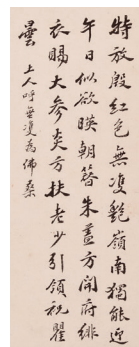 特放殷紅色無雙艷嶺南獨能迎
午日似欲暎朝簪朱蓋方開府緋
衣賜大參炎方扶老少引領祝瞿
曇 上人呼無雙為佛桑